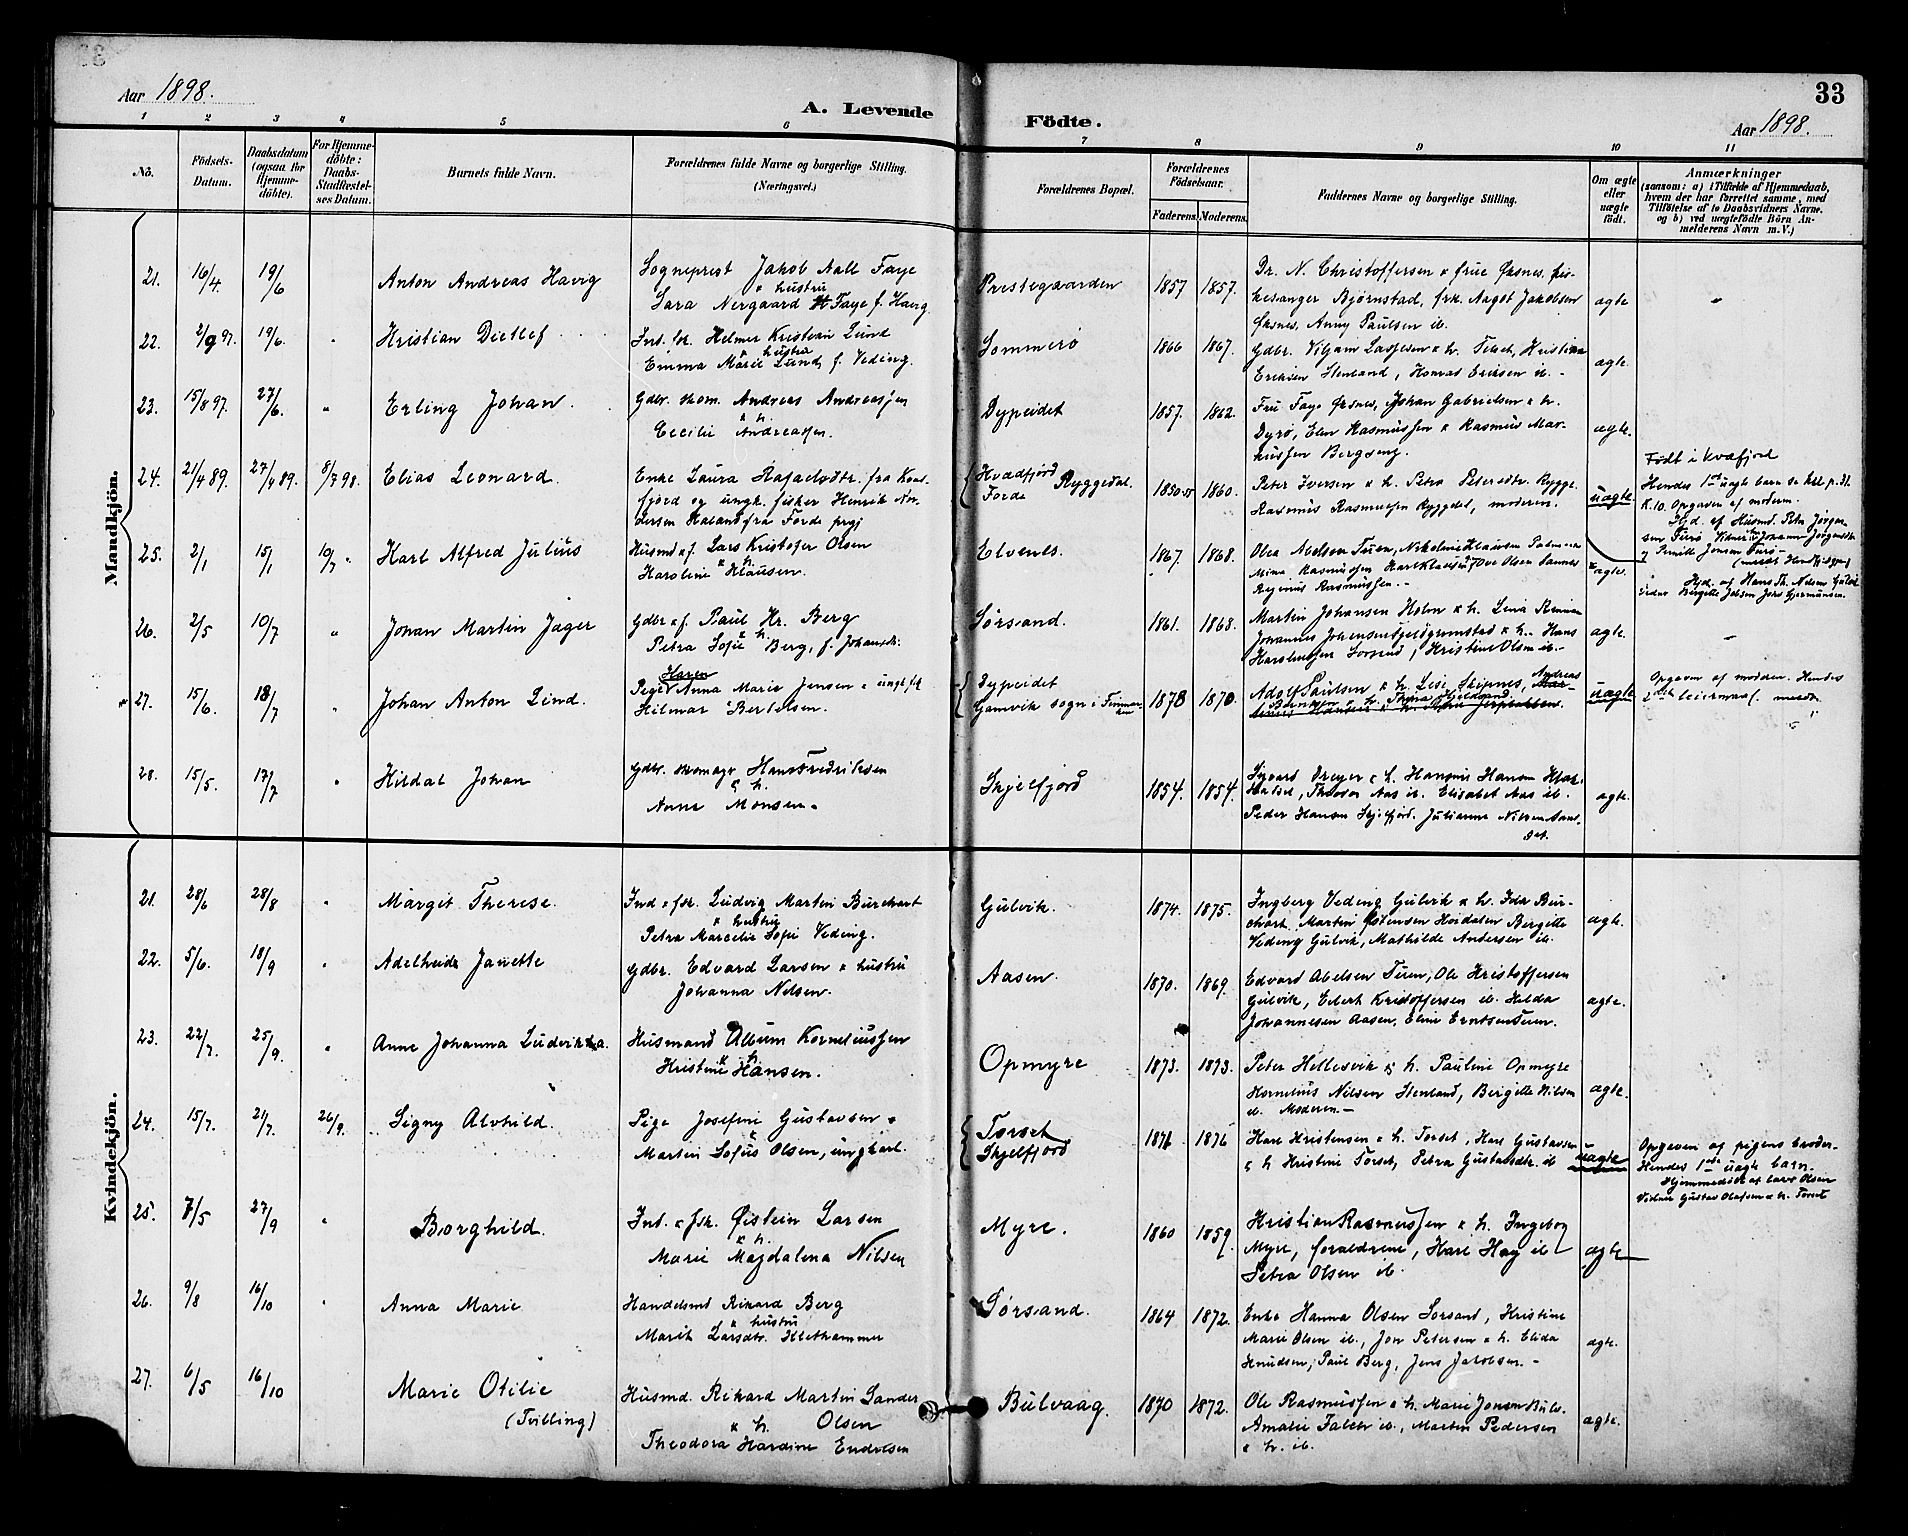 33
Aar 1898.
A. Levende Födte.
Aar 1898.
1 2 3 4 5 6 7 8 9 10 11
No.
Födsels-
Datum.
Daabsdatum
(ogsaa for
Hjemme-
døbte).
For Hjemme-
døbte:
Daabs-
Stadfæstel-
ses Datum.
Barnets fulde Navn.
Forældrenes fulde Navne og borgerlige Stilling.
(Næringsvei.)
Forældrenes Bopæl.
Forældrenes
Födselsaar.
Faderens. Moderens.
Faddernes Navne og borgerlige Stilling.
Om ægte
eller
uægte
født.
Anmærkninger
(saasom: a) i Tilfælde af Hjemmedaab,
hvem der har forrettet samme, med
Tilföielse af to Daabsvidners Navne.
og b) ved uægtefödte Börn An-
melderens Navn m.V.)
Mandkjön.
21. 16/4. 19/6 Anton Andreas Havig
Sogneprest Jakob Nall Faye
& hustru
Sara Nergaard Faye f. Havig
Prestegaarden 1857 1857.
Dr. N. Christoffersen & frue Øksnes,
kesanger Bjørnstad, frk. Aagot Jakobsen
Øksnes, Anny Paulsen ib.
ægte "
22. 2/9 97. 19/6. " Kristian Dietlef
Ind. Helmer Kristian Lund
& hustru
Emma Marie Lund, f. Veding.
Sommerø 1866 1867.
Gdbr. & h. Kristian
Eriksen Stenland, Konrad Eriksen ib. -
ægte.
23. 15/8 97. 27/6. " Erling Johan.
Gdbr. skom. Andreas Andreassen
& h.
Cecilie Andreassen.
Dypeidet 1857. 1862.
Fru Faye Øksnes, Johan Gabrielsen & h.
Dyrø, Elen Rasmussen & Rasmus Mar-
kussen Bergseng.
ægte.
24. 21/4 89. 27/4 89. 8/7 98. Elias Leonard.
Enke Laura Rafaelsdtr. fra Kvæ-
fjord og ungk. fisker Henrik An-
dersen Haland fra Førde prgj
Kvædfjord Ryggedal.
Førde
1850 1860.
Peter Iversen & h. Petra Petersdtr. Rygge.
Rasmus Rasmussen Ryggedel, moderen.
uægte.
Født i Kvæfjord
Hendes 1ste uægte barn se
K.10. Opgaven af moderen.
Hjd. af Husmd. Peter Jørgen-
sen
25. 2/1 15/1 10/7 " Karl Alfred Julius
Husmd & f. Lars Kristofer Olsen
& h.
Karoline Klausen.
Elvenes. 1867. 1868.
Olea Abelsen Tuen, Nikoline Klausen
Mina Rasmussen Karl Klausen Ove Olsen Sannes
Reginus Rasmussen. -
ægte.
Hjd. af Hans Th. Nilsen Gulvik
Bergette Jakobsen Jens Gjermundsen.
26. 2/5 10/7 " Johan Martin Jager
Gdbr & f. Paul Kr. Berg
& h.
Petra Sofie Berg, f. Johansdtr.
Sørsand. 1861. 1868.
Martin Johansen Holm & h. Lina
Johannes Johansen & h. Hans
Sørsand, Kristine Olsen ib.
ægte. -
27. 15/6. 18/7 " Johan Anton Lind.
Karen
Pige Anna Marie Jensen & ungk f.
Hilmar Bertelsen.
Dypeidet
Gamvik sogn i Finmar-
ken
1878 1870.
Adolf Paulsen & h. Lise Skipnes, Andreas
Berntsen & h.
uægte
Opgaven af moderen. Hendes
2det leiermaal.
28. 15/5. 17/7 " Hildal Johan
Gdbr. skomagr Hans Fredriksen
& h.
Anne Monsen.
Skjelfjord 1854. 1854.
Sivard Dreyer & h. Hansine Hansen
Theodor Aas ib. Elisabet Aas ib.
Peder Hansen Skjelfjord. Julianne Nilsen
ægte.
Kvindekjön.
21. 28/6 28/8 " Margit Therese.
Ind & fsk. Ludvig Martin Burchart
& hustru
Petra Marcelie Sofie Veding.
Gulvik. 1874. 1875.
Ingberg Veding Gulvik & h. Ida Bur-
chart Martin Sørensen Høidalen Bergitte
Veding Gulvik, Mathilde Andersen ib.
ægte.
22. 5/6. 18/9 " Adelheide Janette
Gdbr. Edvard Larsen & hustru
Johanna Nilsen.
Aasen. 1870. 1869.
Edvard Abelsen Tuen, Ole Kristoffersen
Gulvik, Edert Kristoffersen ib. Helda
Johannesen Aasen, Eline Erntsen Tuen.
ægte.
23. 22/7. 25/9. " Anne Johanna Ludvikka.
Husmand Album Korneliussen
& h.
Kristine Hansen.
Opmyre 1873. 1873.
Peter Hellesvik & h. Pauline Opmyre
Kornelius Nilsen Stenland, Bergitte Nilsen
ib. Moderen. -
ægte.
24. 15/7. 21/7. 26/9. Signy Alvhild.
Pige Josefine Gustavsen &
Martin Sofus Olsen, ungkarl.
Torset
Skjelfjord
1871 1876
Karl Kristensen & h. Torset, Karl Gustavsen
& h Kristine Torset, Petra Gustavsdtr. ib
uægte
Opgaven af pigens broder.
Hendes 1ste uægte barn.
Hjemmedøbt af Lars Olsen
Vidner Gustav Olafsen & h. Torset
25. 7/5 27/9 " Borghild.
Ind. & fsk. Øistein Larsen
& h.
Marie Magdalena Nilsen
Myre. 1860 1859.
Kristian Rasmussen & h. Ingeborg
Myre, forældrene, Karl Hay ib
Petra Olsen ib.
ægte
26. 9/8 16/10 " Anna Marie
Handelsmd Rikard Berg
& hustru
Marit Larsdtr. Klethammer
Sørsand. 1864 1872.
Enke Hanna Olsen Sørsand, Kristine
Marie Olsen ib., Jon Petersen & h. Elida
Knudsen, Paul Berg, Jens Jakobsen. -
ægte.
27. 6/5 16/10 Marie Otilie
(Tvilling)
Husmd. Rikard Martin Sander
& h. Olsen
Theodora Hardine Endresen
Bulvaag. 1870 1872.
Ole Rasmussen & h. Marie Jonsen Bulv.
Amalie Falch ib., Martin Pedersen
& h. ib.
ægte.